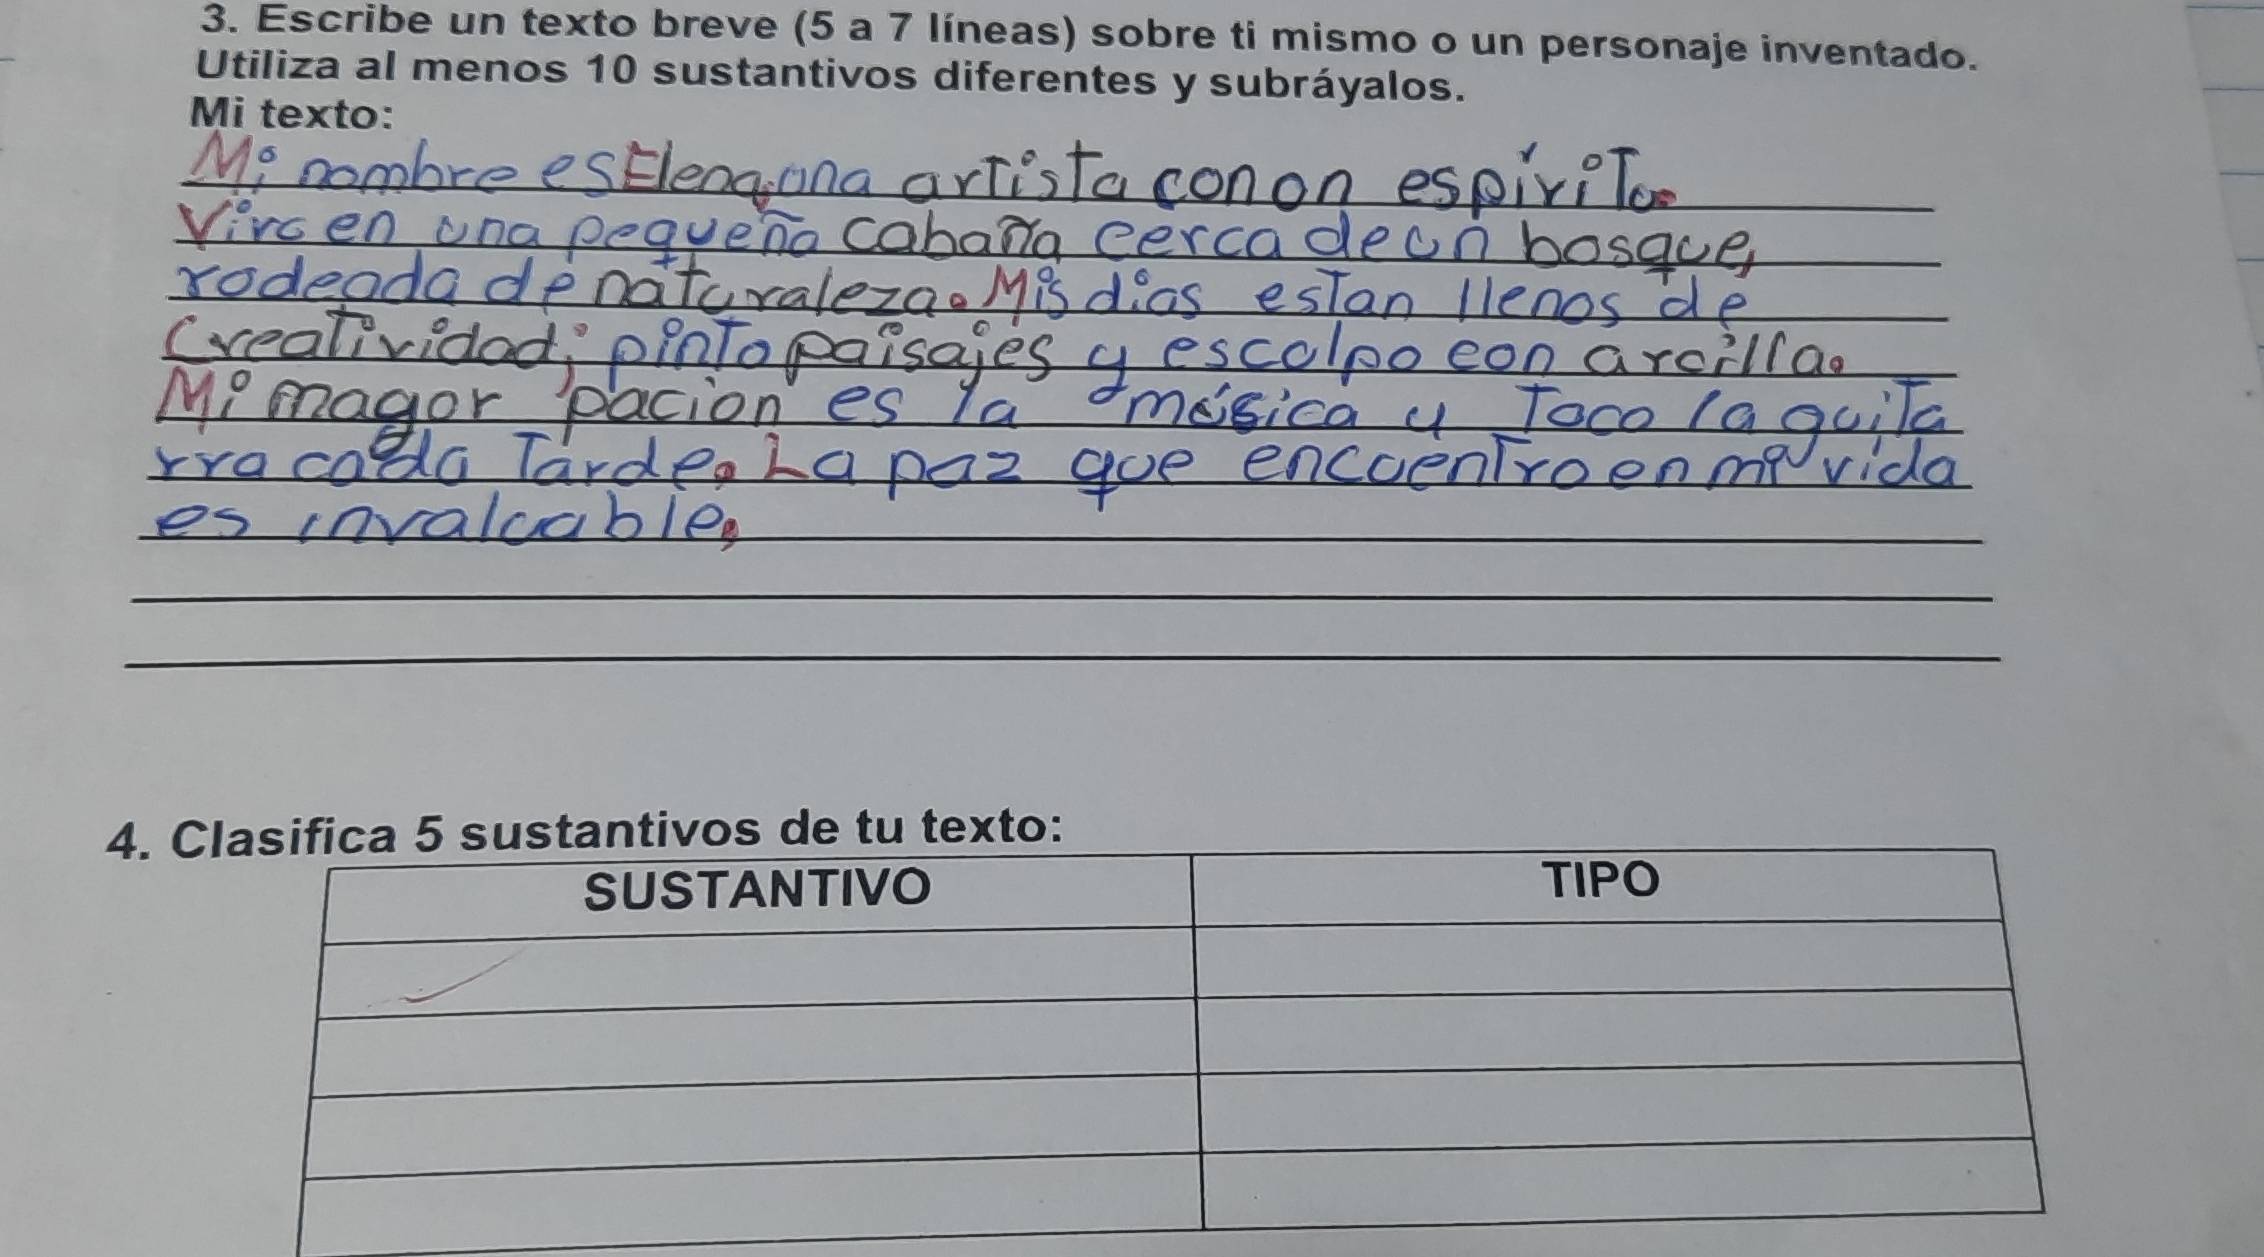 3. Escribe un texto breve (5 a 7 líneas) sobre ti mismo o un personaje inventado.
Utiliza al menos 10 sustantivos diferentes y subráyalos.
Mi texto:
Mi nombre es Elena, una artista con un espíritu.
Vivo en una pequeña cabaña cerca de un bosque,
rodeada de naturaleza. Mis dias estan llenos de
Creatividad; pinto paisajes y esculpo con arcilla.
Mi magor pacion es la música y Toco la guita
rra cada Tarde. La paz que encuentro en mi vida
es invaluable.
4. Clasifica 5 sustantivos de tu texto:
SUSTANTIVO TIPO